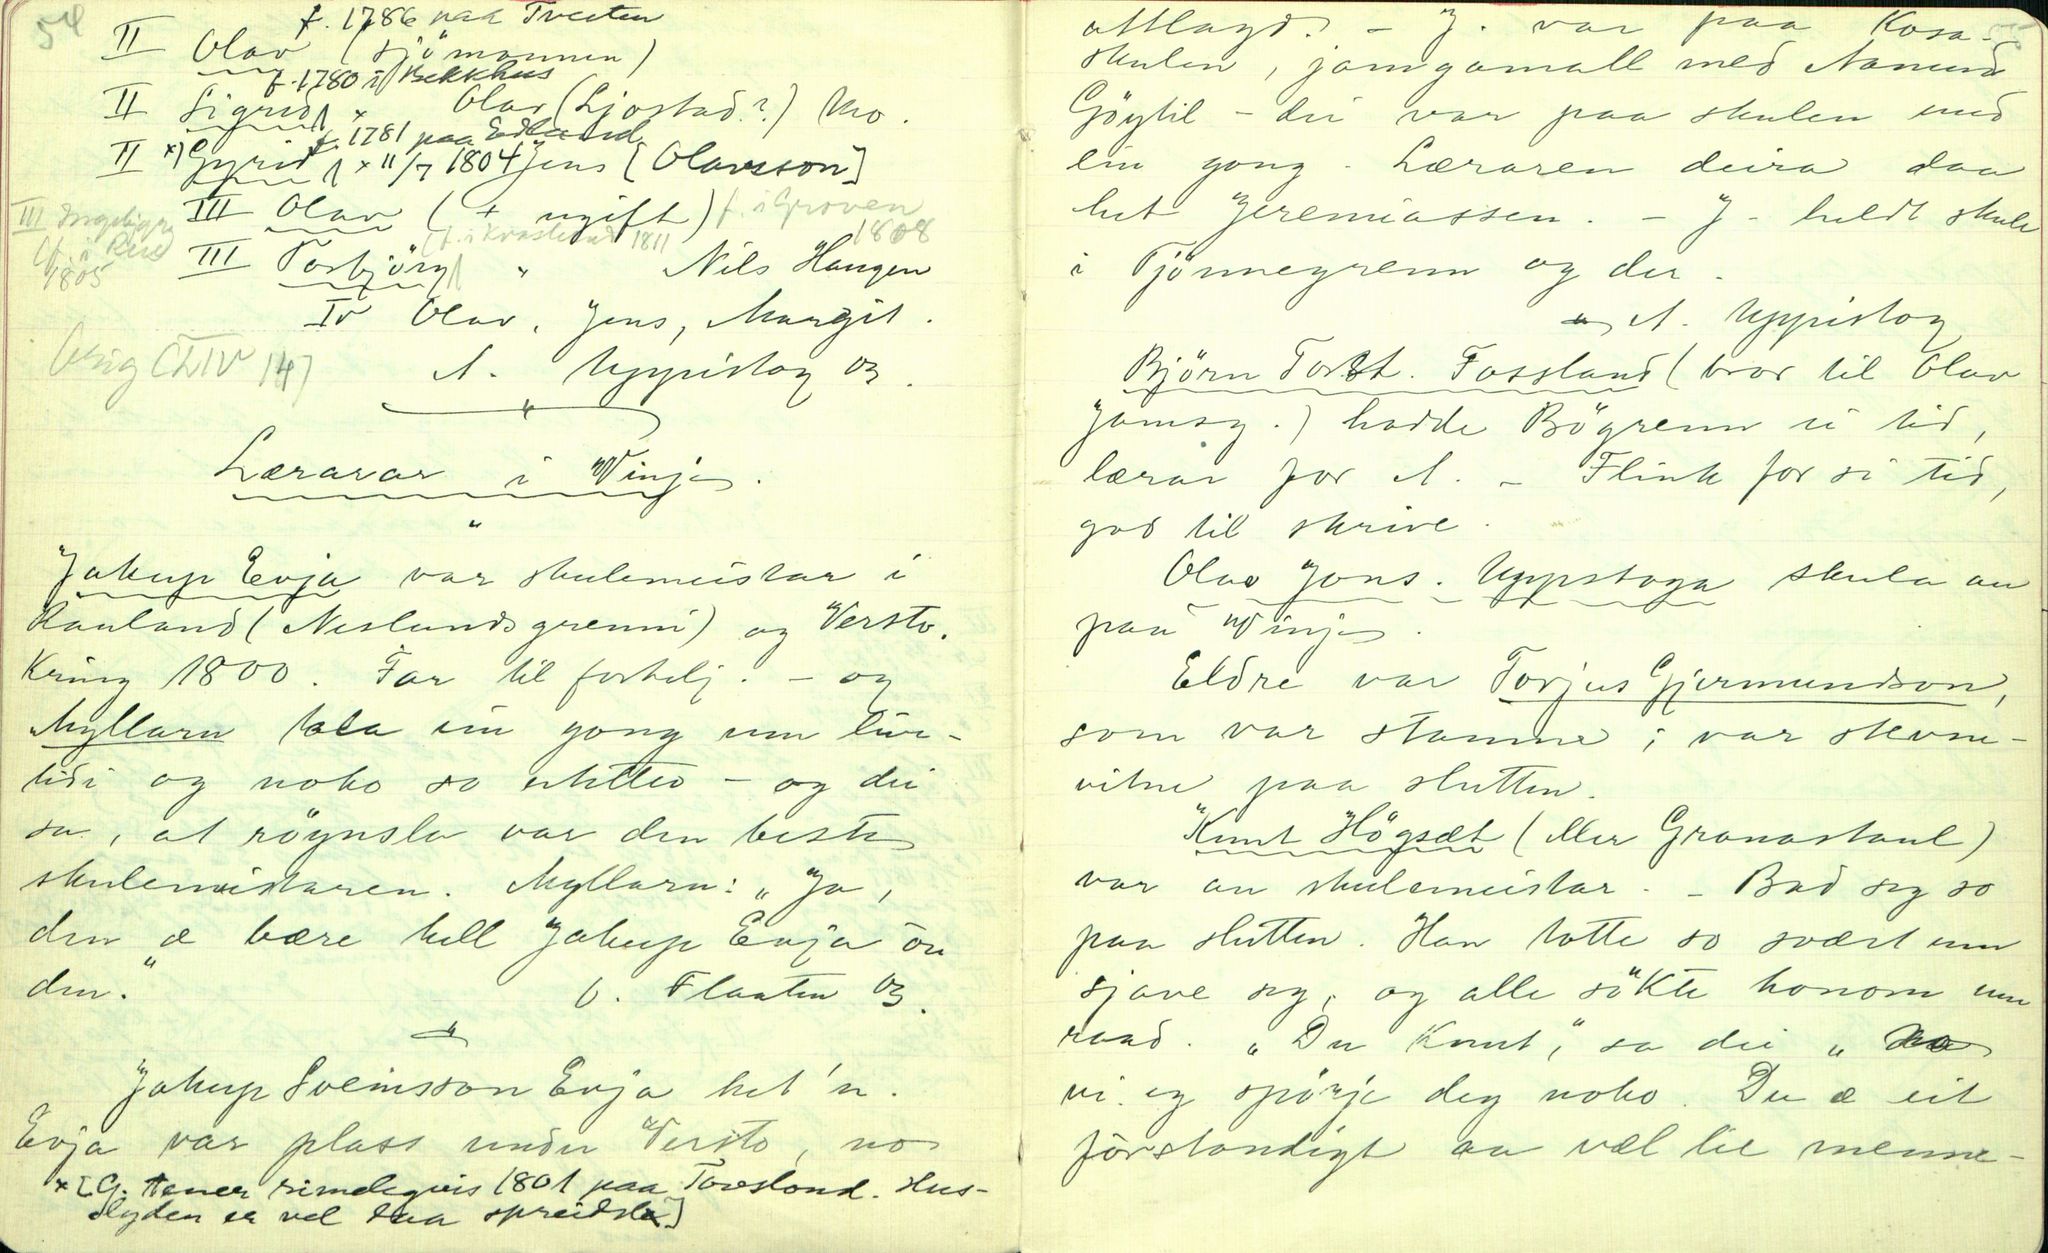 54
f. 1786 paa Tveiten
II Olav (sjömannen)
f. 1780 i Bekkhus
II Sigrid x Olav (Ljostad?) Mo.
f. 1781 paa Edland
II x) Gyrid x 11/7 1804 Jens [Olavsson]
III Olav (+ ugift) f. i Groven 1808
III Ingebjörg (f. i 1805
(f. i Kvaslund 1811
III Torbjörg " Nils Haugen
IV Olav, Jens, Margit.
Orig CLIV 147
A. Uppistog og.
"
Lærarar i Vinje.
"
Jakup Evja var skulemeistar i
Rauland (Neslandsgrenni) og Versto.
Kring 1800. Far til forkelj. – og
Myllarn tala ein gong um live-
tidi og noko so ette – og dei
sa, at röynsla var den beste
skulemeistaren. Myllarn: „Ja,
den æ bære hell Jakup Evja òu
den." O. Flaaten og.
"
Jakup Sveinsson Evja het 'n.
Evja var plass under Versto, no
x [G. tener rimelegvis 1801 paa Torvslond. Hus-
lyden er vel daa spreidd.]
attlagd. – J. var paa Kosa-
skulen, jamgamall med Aamund
Göytil – dei var paa skulen med
ein gong. Læraren deira daa
het Jeremiassen. – J. heldt skule
i Tjönnegrenn og der.
A. Uppistog
Björn Torst. Fossland (bror til Olav
Jamsg.) hadde Bögrenn ei tid,
lærar for A. – Flink for si tid,
god til skrive.
Olav Jons. Uppstoga skula au
paa Vinje.
Eldre var Torjus Gjermundson,
som var stamme; var stevne-
vitne paa slutten.
Knut Högsæt (eller Granastaul)
var au skulemeistar. – Bad seg so
paa slutten. Han totte so svært um
sjave seg, og alle sökte honom um
raad. „Du Knut," sa dei „no
vi eg spörje deg noko. Du æ eit
forstandigt aa væl lie menne-